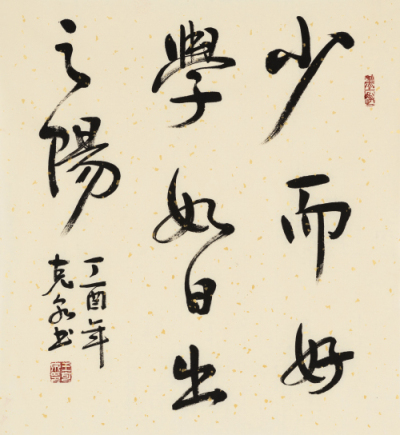 少而好
學如日出
之陽
丁酉年
克永书